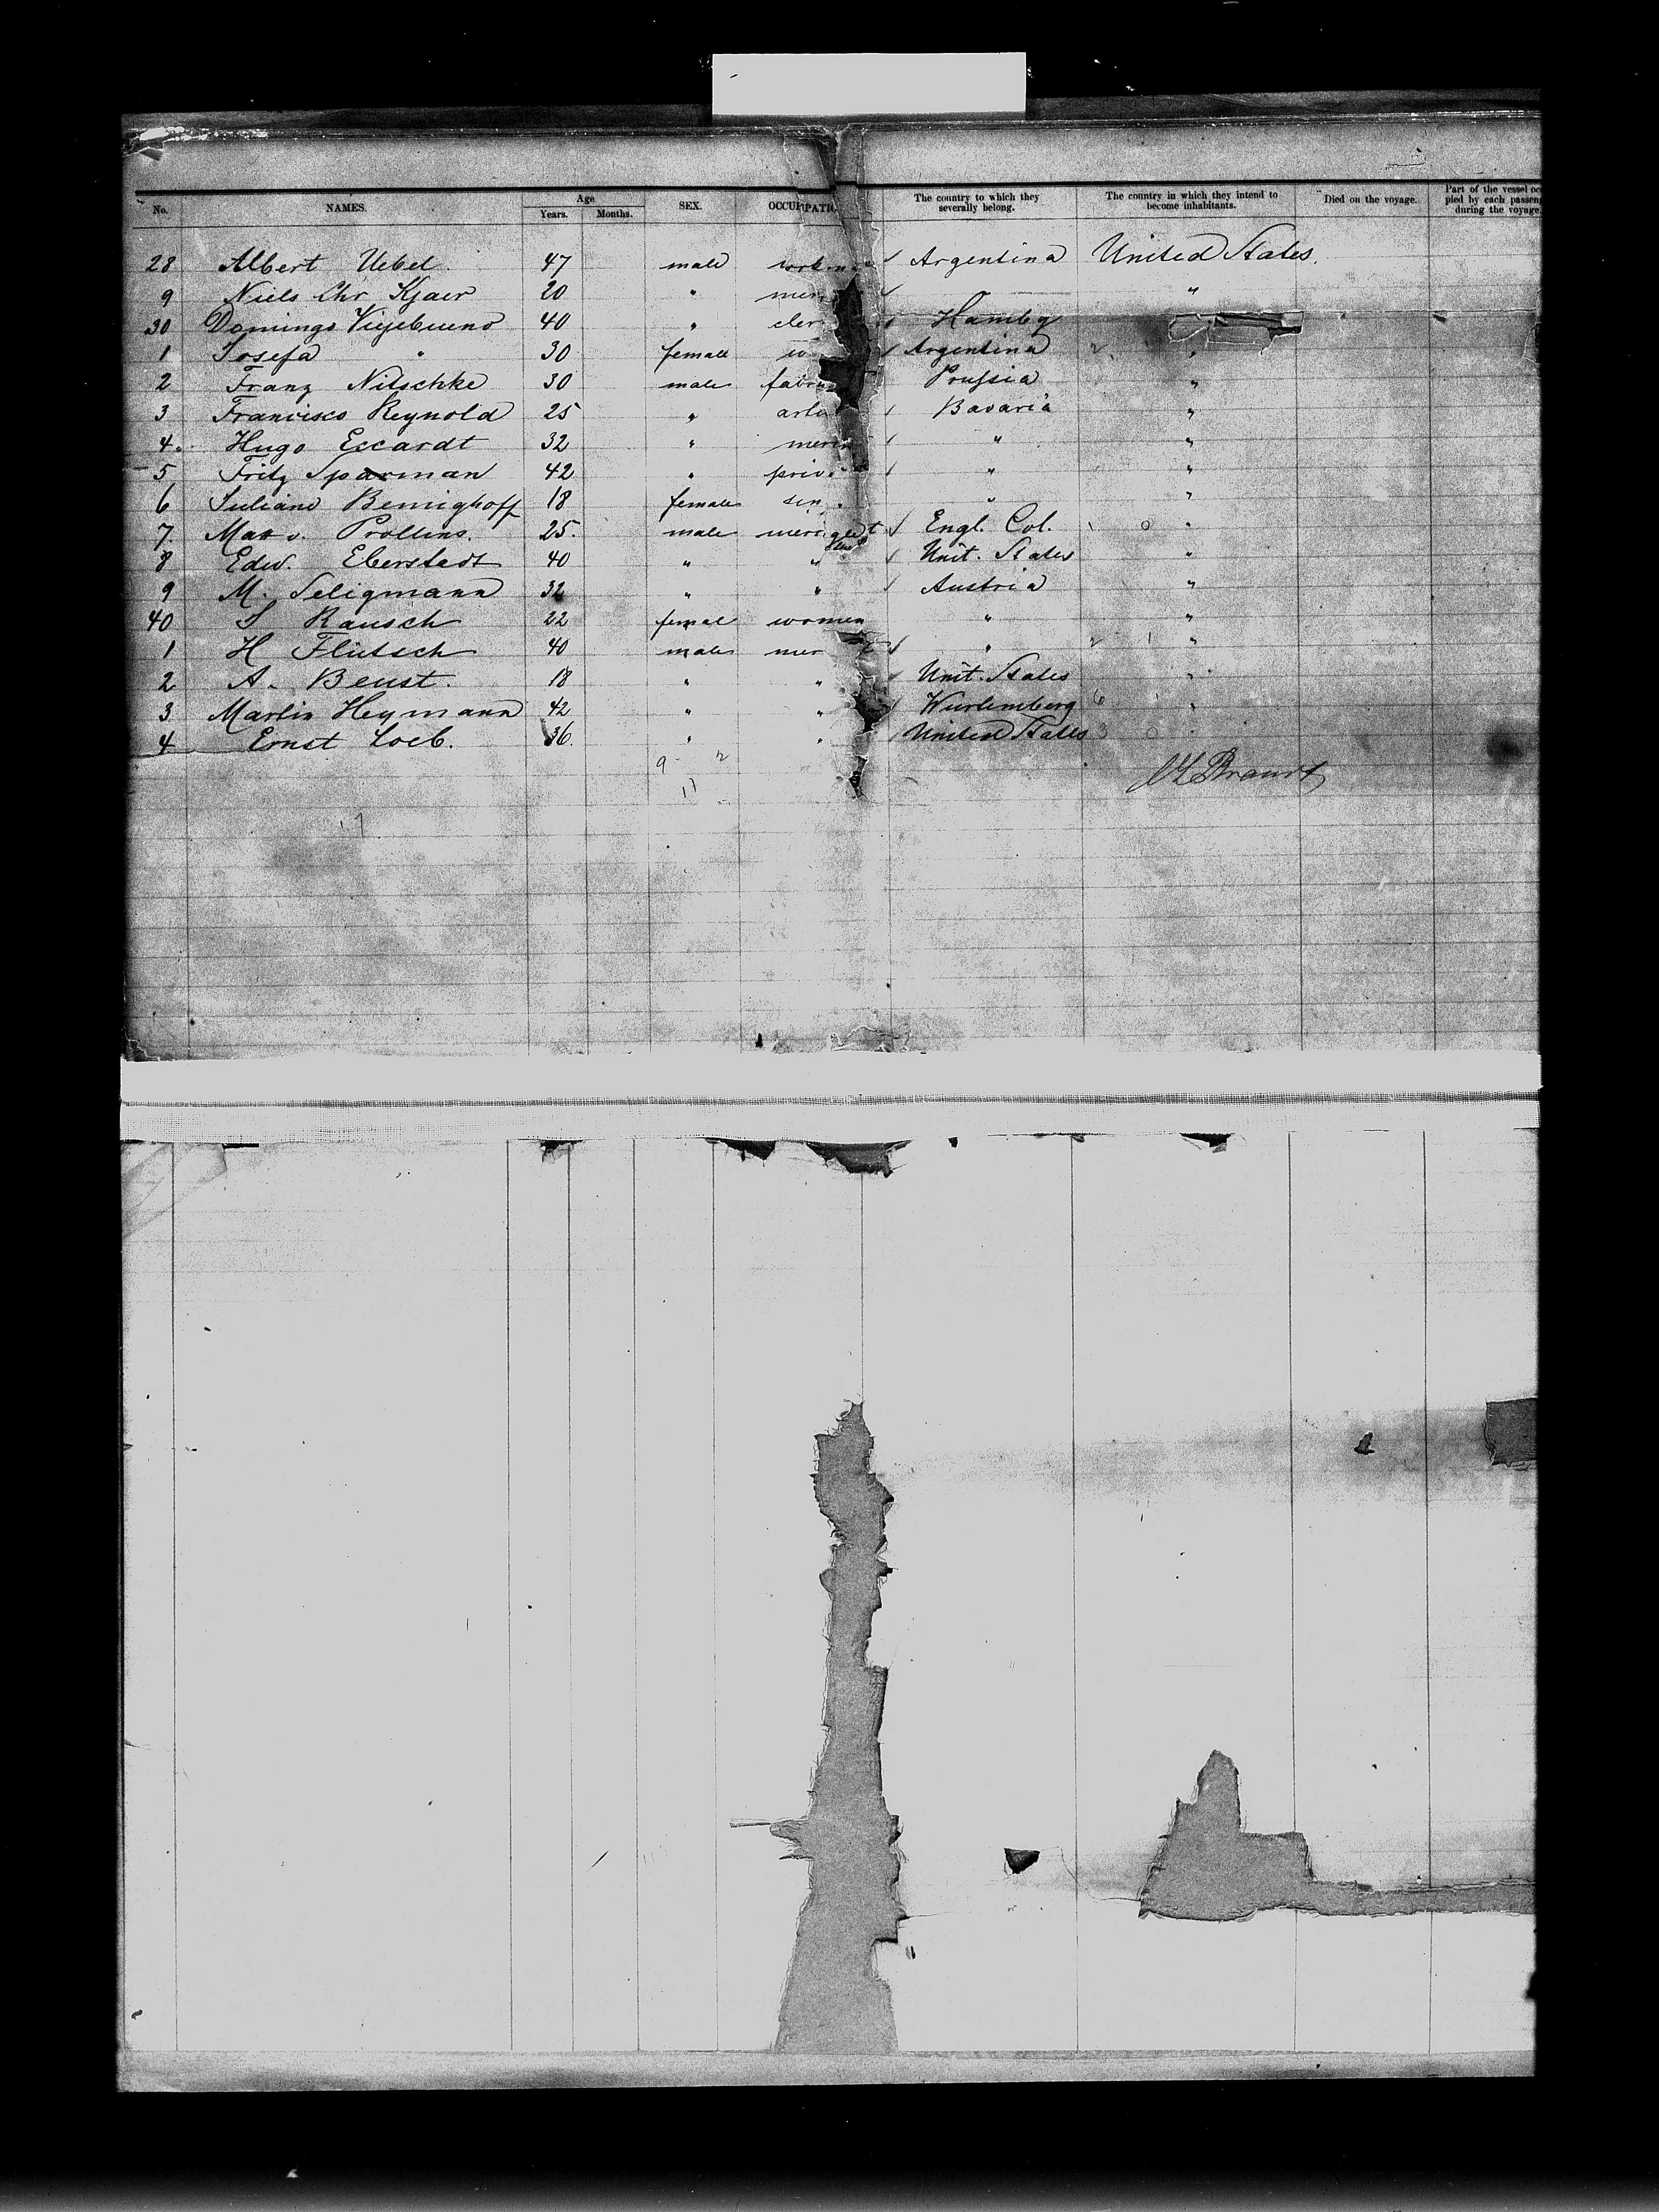 No. NAMES. Age Years. Months. SEX. OCCUPATIO The country to which they severally belong. The country in which they intend to become inhabitants. Died on the voyage. Part of the vessel occupied by each passenger during the voyage.
28 Albert Uebel. 47 male Argentina United States.
9 Niels Chr Kjaer 20 " mer "
30 Domingo Viejebueno 40 " cler Hambg
1 Josefa " 30 female Argentina "
2 Franz Nitschke 30 male fabr Prussia "
3 Francisco Reynold 25 " Bavaria "
4. Hugo Eccardt 32 " mer " "
5 Fritz Sparman 42 " priv " "
6 Juliane Bemighoff 18 female " "
7. Max v. Prollins. 25. male mer t Engl. Col. "
8 Edw. Eberstadt 40 " " Unit. States "
9 M. Seligmann 32 " " Austria "
40 S Rausch 22 female women " "
1 H Flütsch 40 male mer t " "
2 A. Beust. 18 " " Unit. States "
3 Martin Heymann 42 " " Wurtemberg "
4 Ernst Loeb. 36. " " United States "
9 2
11
17